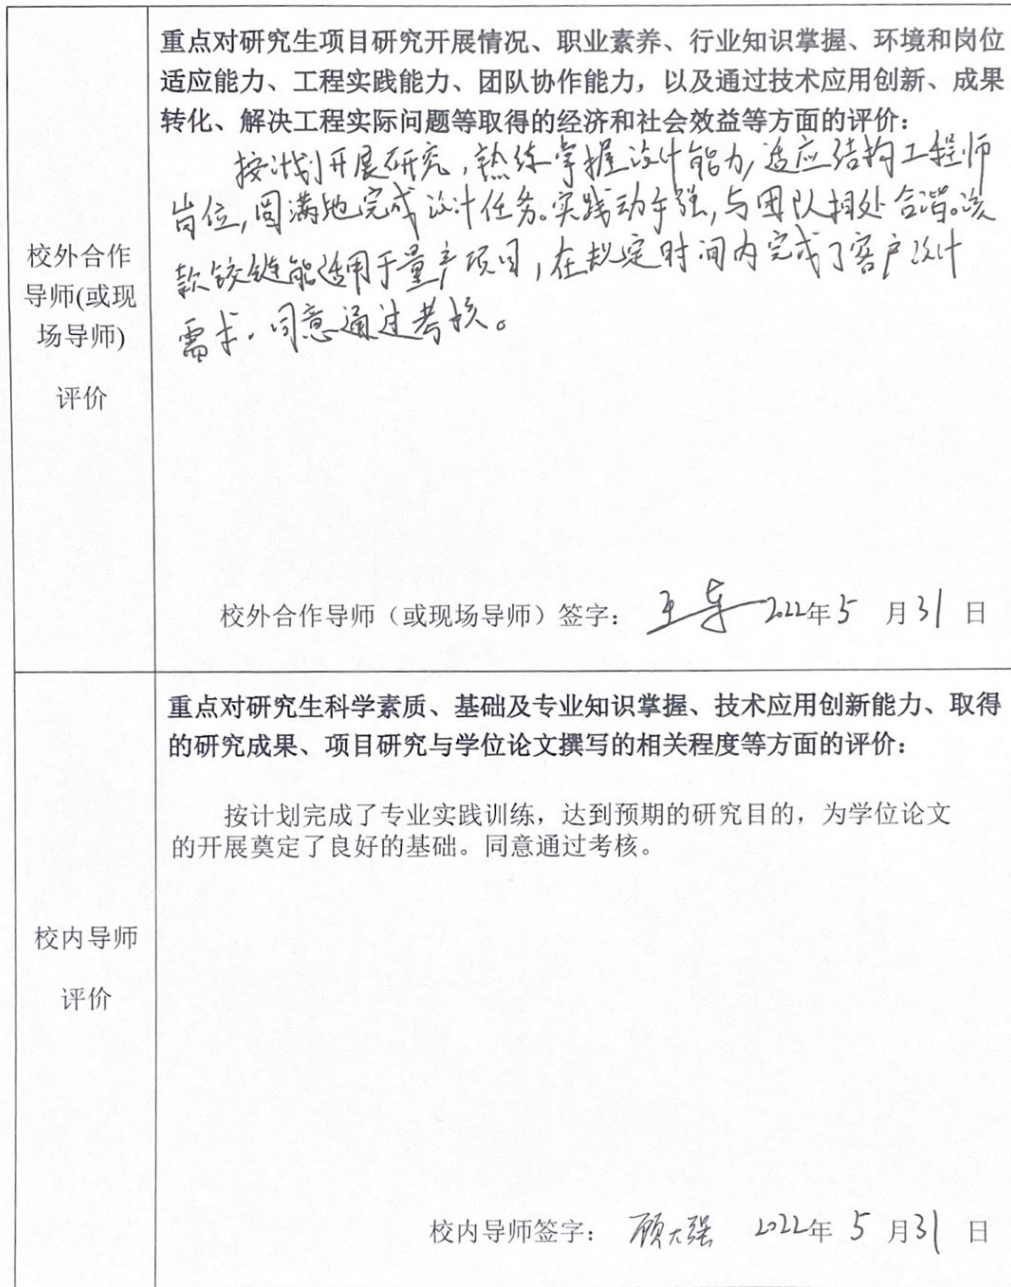 重点对研究生项目研究开展情况、职业素养、行业知识掌握、环境和岗位
适应能力、工程实践能力、团队协作能力，以及通过技术应用创新、成果
转化、解决工程实际问题等取得的经济和社会效益等方面的评价：
按计划开展研究，熟练掌握设计能力，适应结构工程师
岗位，圆满地完成设计任务。实践动手强，与团队相处合谐。该
款铰链能适用于量产项目，在规定时间内完成了客户设计
需求，同意通过考核。
校外合作
导师(或现
场导师)
评价
校外合作导师（或现场导师）签字： 2022年 5 月 31 日
重点对研究生科学素质、基础及专业知识掌握、技术应用创新能力、取得
的研究成果、项目研究与学位论文撰写的相关程度等方面的评价：
按计划完成了专业实践训练，达到预期的研究目的，为学位论文
的开展奠定了良好的基础。同意通过考核。
校内导师
评价
校内导师签字： 顾大强 2022年 5 月 31 日